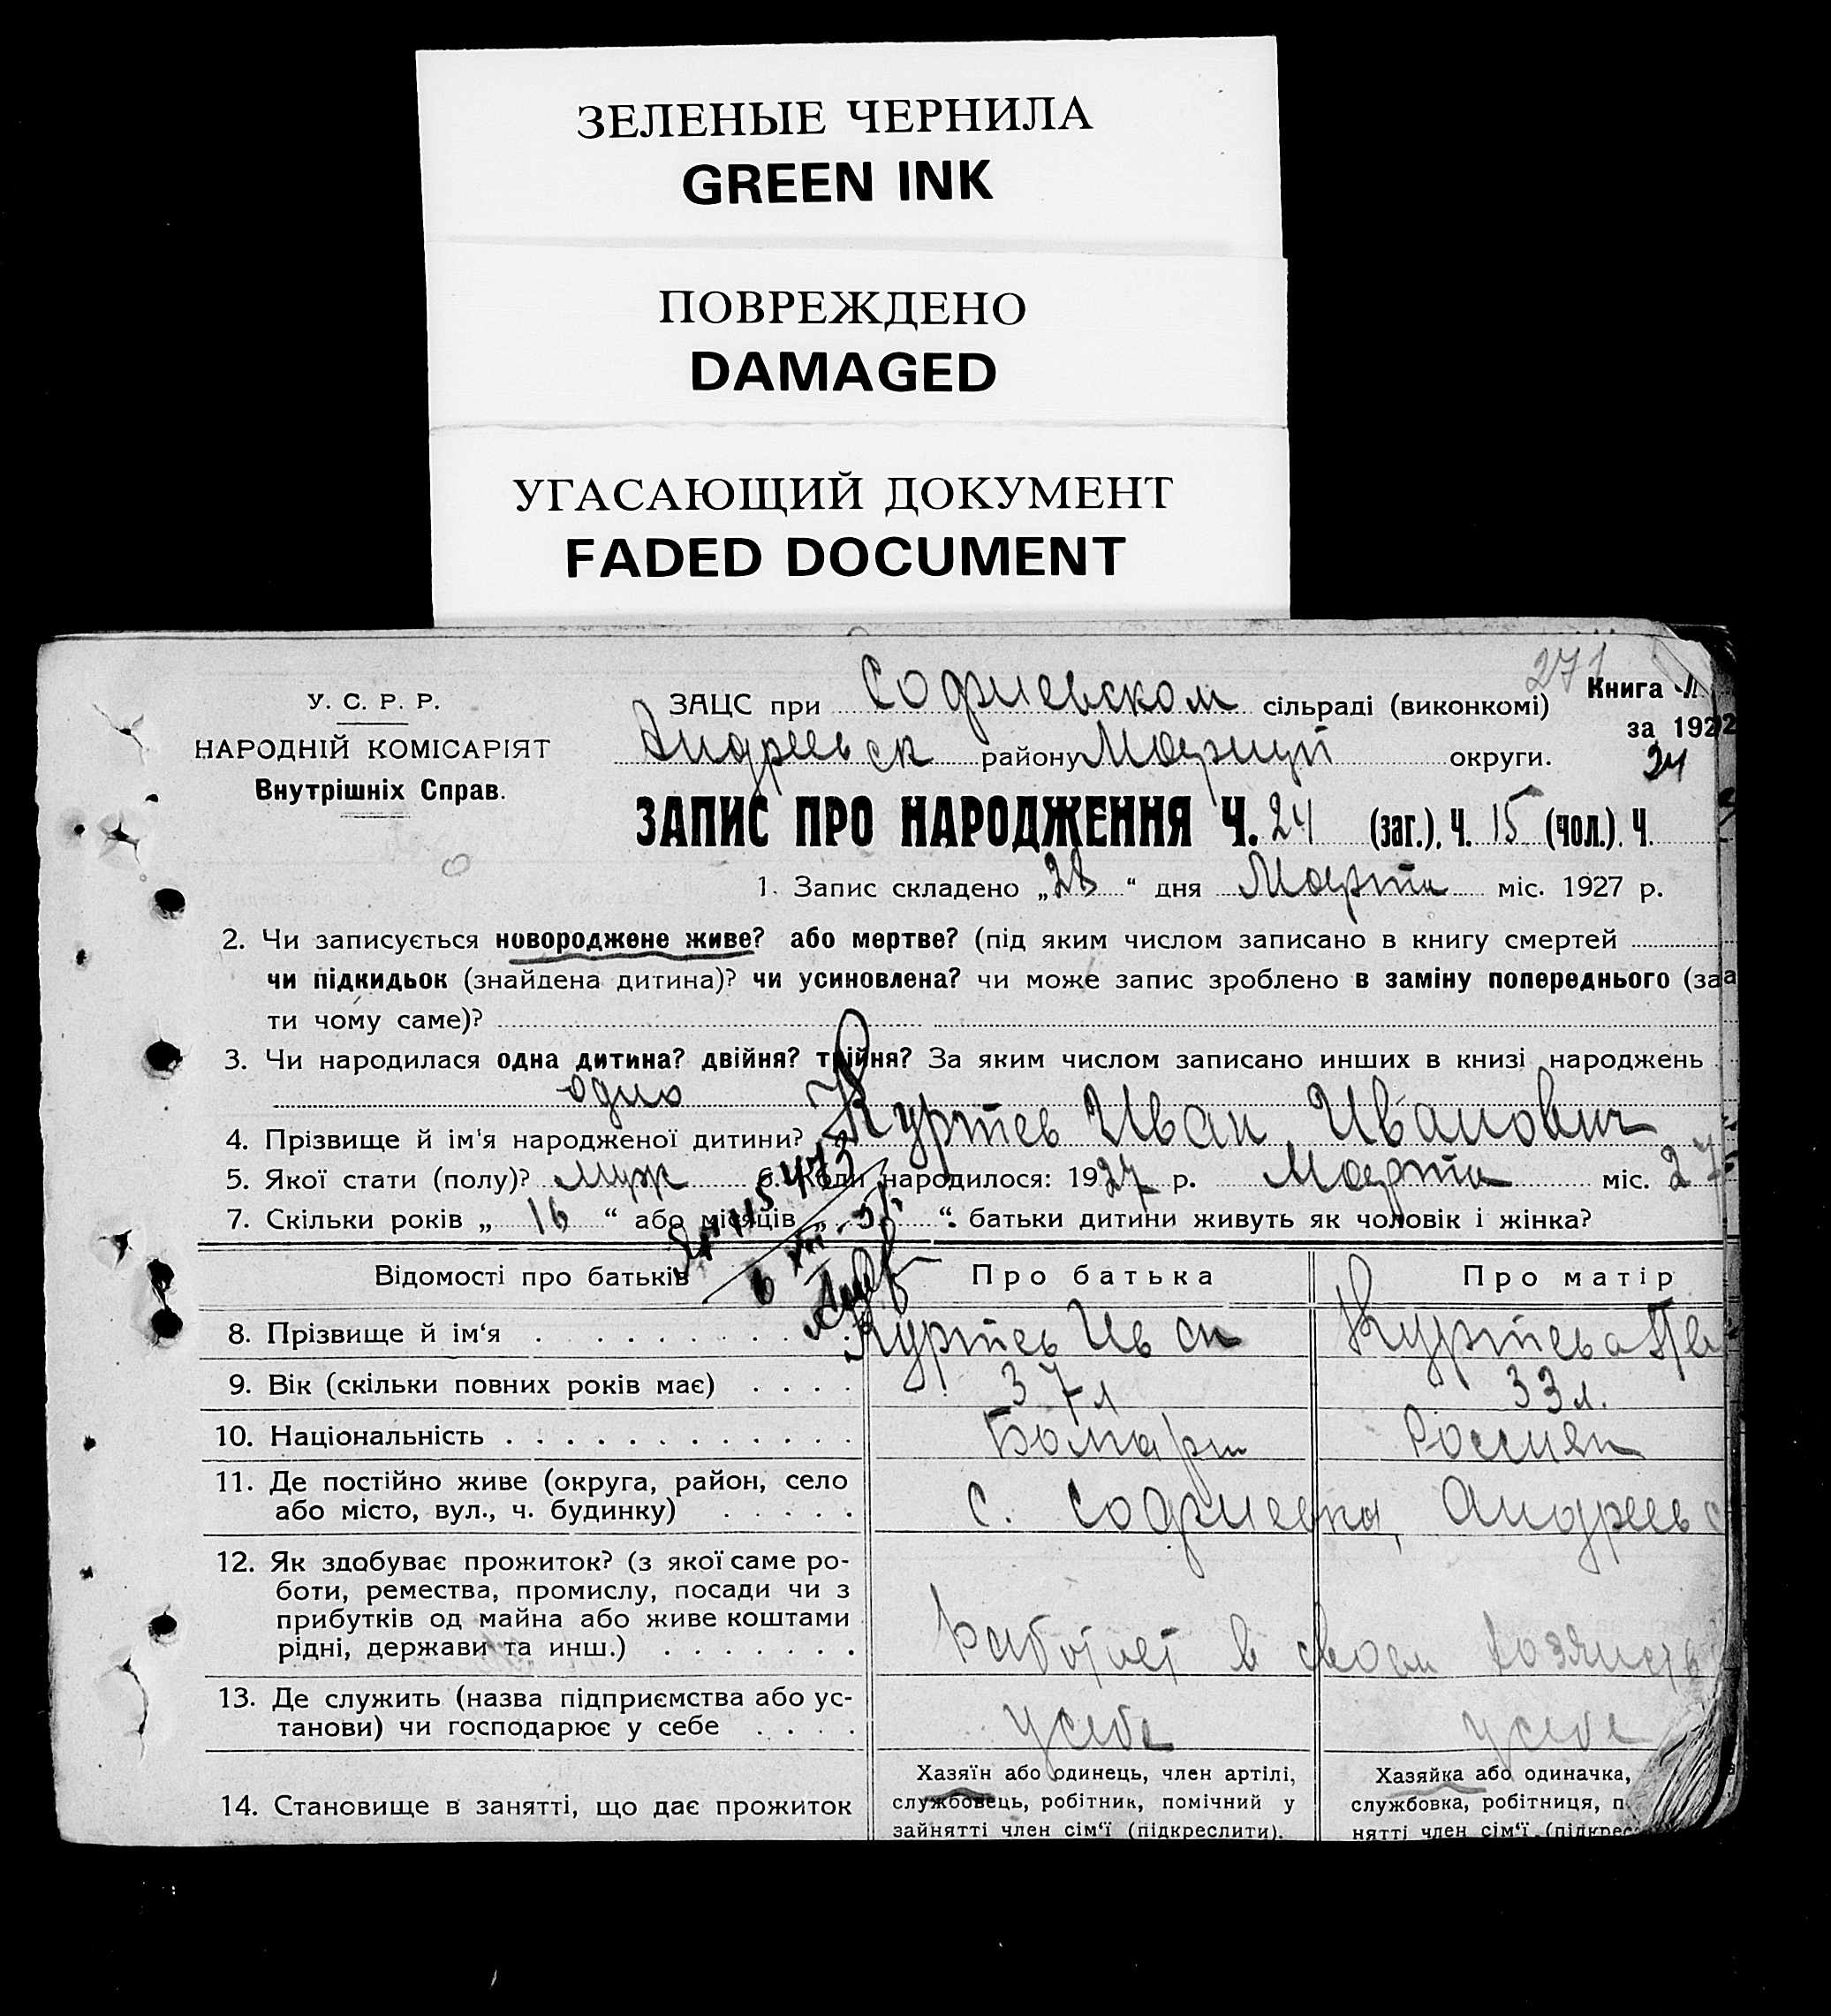 ЗЕЛЕНЫЕ ЧЕРНИЛА
GREEN INK
ПОВРЕЖДЕНО
DAMAGED
УГАСАЮЩИЙ ДОКУМЕНТ
FADED DOCUMENT
271
У. С. Р. Р.
НАРОДНІЙ КОМІСАРІЯТ
Внутрішніх Справ.
ЗАЦС при Софиевском сільраді (виконкомі)
Книга
за 192
Андреевск району Мариуп округи.
24
ЗАПИС ПРО НАРОДЖЕННЯ Ч. 24 (заг.), Ч. 15 (чол.). Ч.
1. Запис складено „28“ дня Марта міс. 1927 р.
2. Чи записується новороджене живе? або мертве? (під яким числом записано в книгу смертей
чи підкидьок (знайдена дитина)? чи усиновлена? чи може запис зроблено в заміну попереднього (за
ти чому саме)?
3. Чи народилася одна дитина? двійня? трійня? За яким числом записано инших в книзі народжень
одно
4. Прізвище й ім'я народженої дитини? Куртев Иван Иванович
5. Якої стати (полу)? Муж 6. Коли народилося: 1927 р. Марта міс. 27
7. Скільки років „ 16 “ або місяців „ “ батьки дитини живуть як чоловік і жінка?
Відомості про батьків Про батька Про матір
8. Прізвище й ім‘я . . . . . . . . Куртев Иван Куртева
9. Вік (скільки повних років має) . . . . 37 л 33 л.
10. Національність . . . . . . . . . . . . . Болгарин Россиян
11. Де постійно живе (округа, район, село
або місто, вул., ч. будинку) . . . . . с. Софиевка, Андреевс
12. Як здобуває прожиток? (з якої саме ро-
боти, ремества, промислу, посади чи з
прибутків од майна або живе коштами
рідні, держави та инш.) . . . . . . . Работает в своем хозяйств
13. Де служить (назва підприємства або ус-
танови) чи господарює у себе . . . . у себе у себе
14. Становище в занятті, що дає прожиток
Хазяїн або одинець, член артілі,
службовець, робітник, помічний у
зайнятті член сім‘ї (підкреслити).
Хазяйка або одиначка,
службовка, робітниця, п
нятті член сім‘ї (підкрес